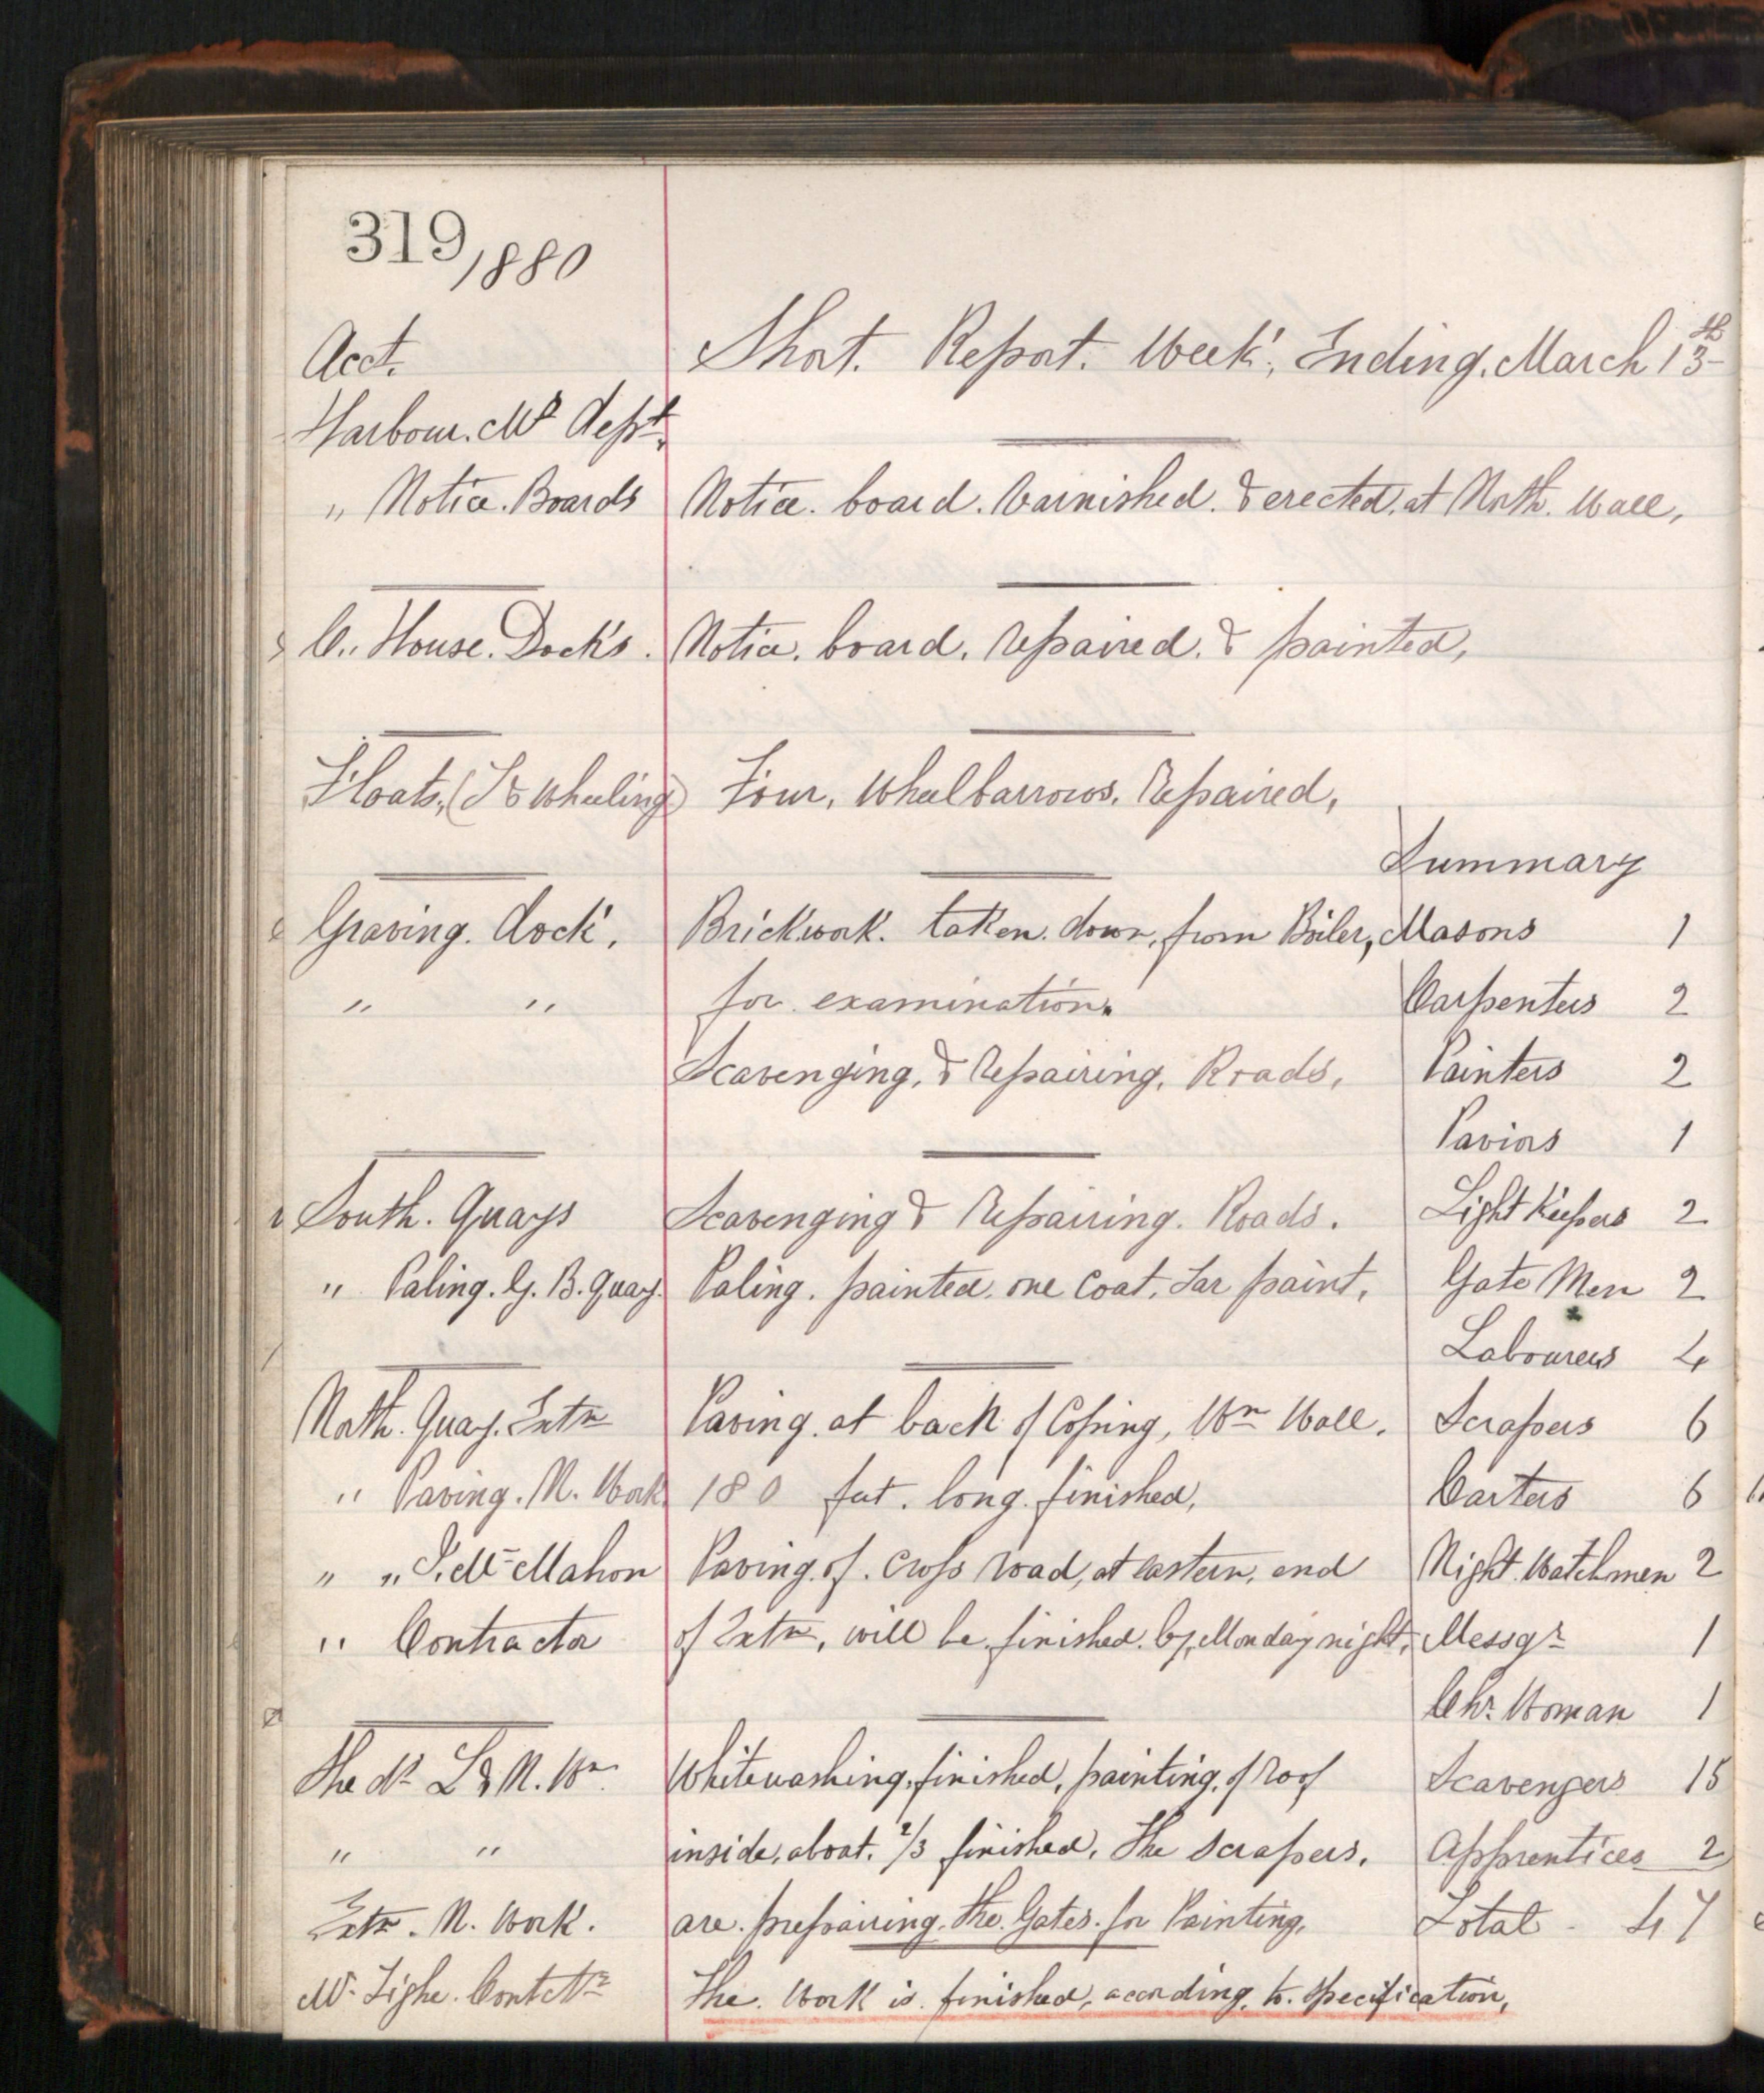 319/1880
Acct. Short. Report. Week, Ending. March 13th
Harbour. Mr dept.
" Notice. Boards Notice. board. Varnished. & erected, at North. Wall,
C.. House. Docks. Notice. board. repaired. & painted,
Floats, ( Wheeling) Four, Wheelbarrows. repaired,
Summary
Graving. dock, Brickwork. taken. down, from Boiler, Masons 1
" " for examination. Carpenters 2
Scavenging, & repairing, Roads, Painters 2
Paviors 1
South. Quays Scavenging & Repairing. Roads. Light Keepers 2
" Paling. G. B. Quay. Paling. painted. one Coat, Tar paint, Gate Men 2
Labourers 4
North. Quay. Extn Paving. at back of Coping, Wn Wall. Scrapers 6
" Paving. N. Work 180 feet. long. finished, Carters 6
" " McMahon Paving. of. Cross road, at eastern, end Night. Watchmen 2
" Contractor of Extn, will be. finished. by, Monday night, Messgr 1
Chr. Woman 1
Shed L & N. Wn. Whitewashing, finished, painting, of roof Scavengers 15
" " inside, about. 2/3 finished, The Scrapers, Apprentices 2
Extn. N. Work. are. prepairing, the. Gates. for Painting, Total - 47
Mr. Tighe. Contctr The. Work is. finished, according, to. Specification,